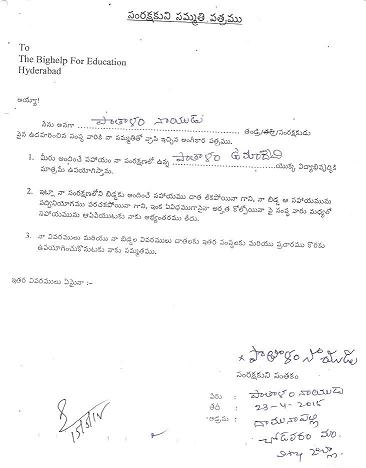 సంరక్షకుని సమ్మతి పత్రము
To
The Bighelp For Education
Hyderabad
అయ్యా!
నేను అనగా పాతాళం నాయుడు తండ్రి/తల్లి/సంరక్షకుడు
పైన ఉదహరించిన సంస్థ వారికి నా సమ్మతితో వ్రాసి ఇచ్చిన అంగీకార పత్రము.
1. మీరు అందించే సహాయం నా సంరక్షణలో ఉన్న పాతాళం యొక్క విద్యాభివృద్ధికి
మాత్రమే ఉపయోగిస్తాము.
2. ఇట్లా నా సంరక్షణలోని బిడ్డకు అందించే సహాయము దాత లేకపోయినా గాని, నా బిడ్డ ఆ సహాయమును
సద్వినియోగము పరచకపోయినా గాని, ఇంక ఏవిధముగానైనా అర్హత కోల్పోయినా పై సంస్థ వారు మధ్యలో
సహాయమును ఆపివేయుటకు నాకు అభ్యంతరము లేదు.
3. నా వివరములు మరియు నా బిడ్డల వివరములు దాతలకు ఇతర సంస్థలకు మరియు ప్రచారము కొరకు
ఉపయోగించుకొనుటకు నాకు సమ్మతము.
ఇతర వివరములు ఏమైనా :-
x పాతాళం నాయుడు
సంరక్షకుని సంతకం
పేరు : పాతాళం నాయుడు
తేది : 23-4-2015
అడ్రసు :
చోడవరం మం
జిల్లా